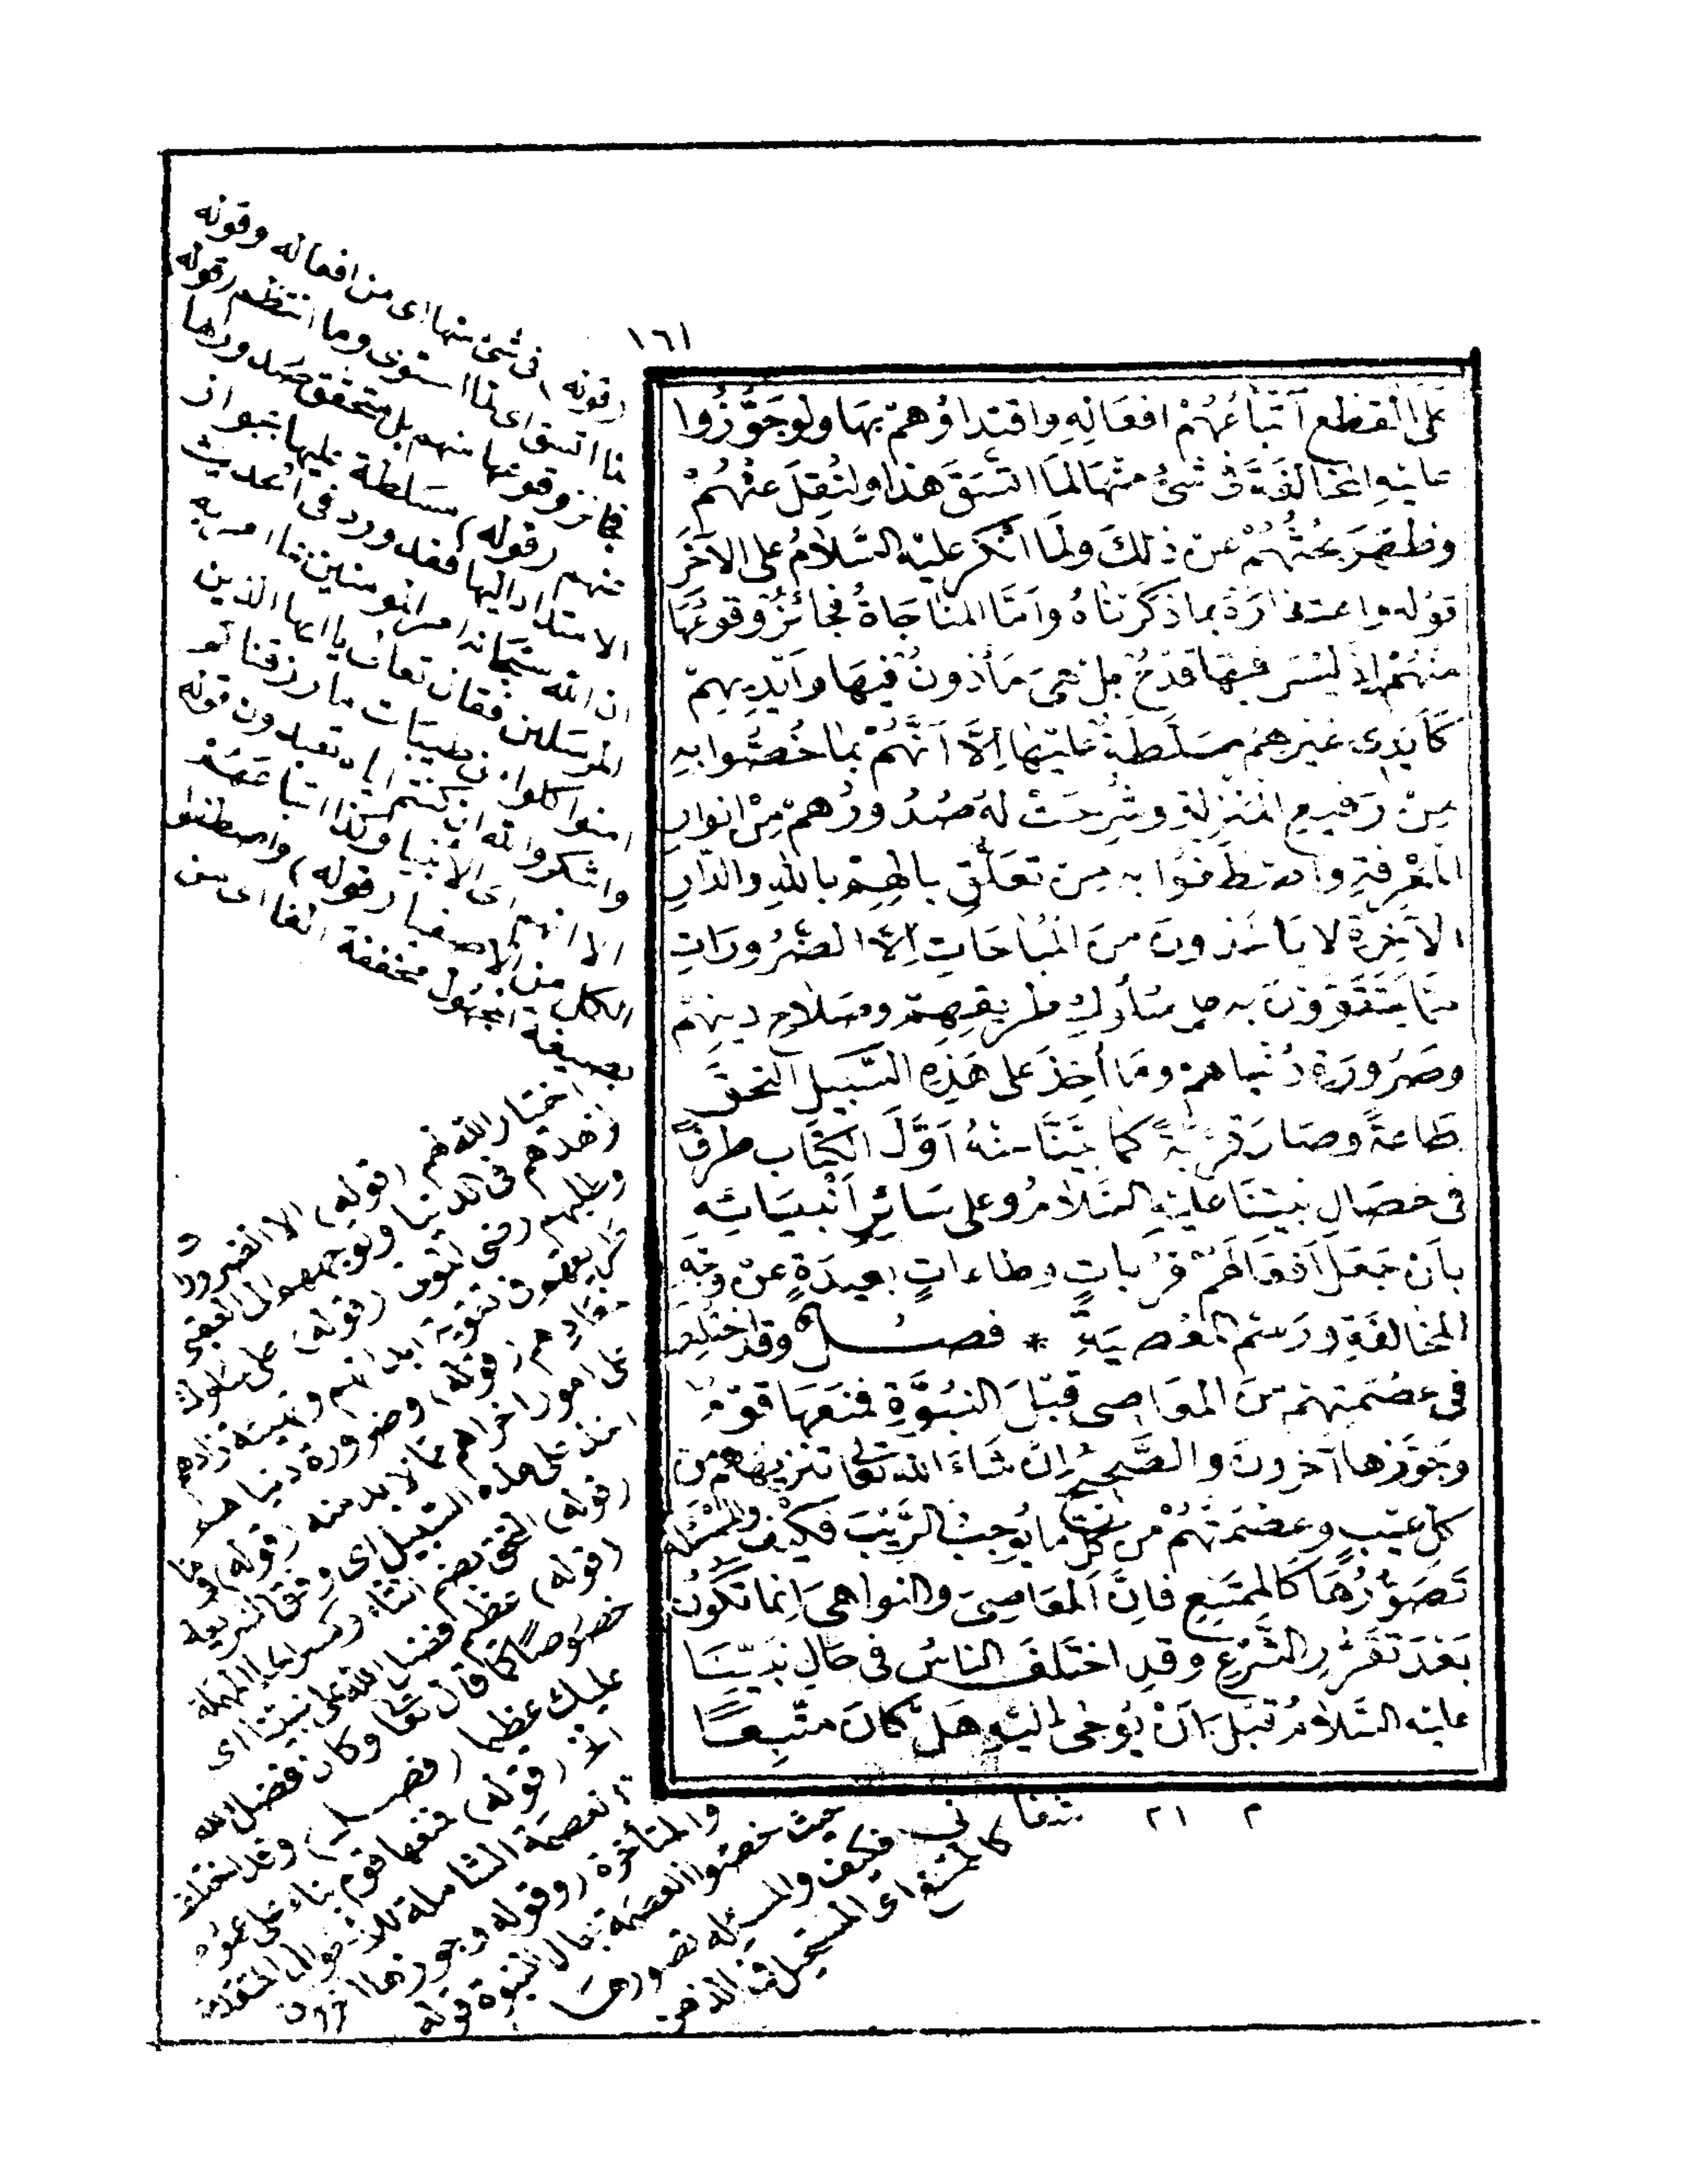 ١٦١
على القطع اتباعهم افعاله واقتداؤهم بها ولو جوزوا
عليه المخالفة فى شئ منها لما اتسق هذا ولنقل عنهم
وظهر بحثهم عن ذلك ولما انكر عليه السلام على الآخر
قوله واعتذاره بما ذكرناه واما المباحات فجائز وقوعها
منهم اذ ليس فيها قدح بل هى مأذون فيها وايديهم
كايدى غيرهم مسلطة عليها الا انهم بما خصوا به
من رفيع المنزلة وشرحت له صدورهم من انوار
المعرفة واصطفوا به من تعلق بالهم بالله والدار
الآخرة لا يأخذون من المباحات الا الضرورات
مما يتقوون به على سلوك طريقهم وصلاح دينهم
وضرورة دنياهم وما أخذ على هذه السبيل التحق
طاعة وصار قربة كما بينا منه اول الكتاب طرفا
فى خصال نبينا عليه السلام
وعلى سائر انبيائه
بان جعل افعالهم قربات وطاعات بعيدة عن وجه
المخالفة ورسم المعصية * فصل وقد اختلف
فى عصمتهم من المعاصى قبل النبوة فمنعها قوم
وجوزها آخرون والصحيح ان شاء الله تعالى تنزيههم من
كل عيب وعصمتهم من كل ما يوجب الريب فكيف والمسئلة
تصورها كالممتنع فان المعاصى والنواهى انما تكون
بعد تقرر الشرع وقد اختلف الناس فى حال نبينا
عليه السلام قبل ان يوحى اليه هل كان متبعا
م ٢١ شفا نى
(قوله) فى شئ منها اى من افعاله وقوله
لما اتسق اى لما استوى وما انتظم (قوله
فجائز وقوعها منهم بل متحقق صدورها
منهم (قوله) مسلطة عليها بجواز
الامتداد اليها فقد ورد فى الحديث
ان الله سبحانه امر المؤمنين بما امر به
المرسلين فقال تعالى يا ايها الذين
امنوا كلوا من طيبات ما رزقناكم
واشكروا لله ان كنتم اياه تعبدون قوله
الا انهم اى الانبيا وكذا اتباعهم
الكل من الاصفيا (قوله) واصطفوا
بصيغة المجهول مخففة الفا اى من
اختار الله لهم (قوله) الا الضرورات
زهدهم فى الدنيا وتوجههم الى العقبى
وطلبهم رضى المولى (قوله) على سلوك
طريقهم من تقوية ابدانهم وتهيئة زادهم
معادهم (قوله) وضرورة دنياهم
على امور اخراهم مما لا بد منه (قوله) وما
اخذ على هذه السبيل اى وفق الشريعة
(قوله) التحق بضم التاء وكسر الحاء المهملة
(قوله) عظيم فضل الله على نبينا اى
خصوصا كما قال تعالى وكان فضل الله
عليك عظيما (فصل) وقد اختلف
الخ (قوله) فمنعها قوم بناء على عموم
العصمة الشاملة للاحوال المتقدمة
والمتأخرة (وقوله وجوزها آخرون
حيث خصوا العصمة بحال النبوة قوله
فكيف والمسئلة تصورها
كالممتنع اى المستحيل فى الذهن